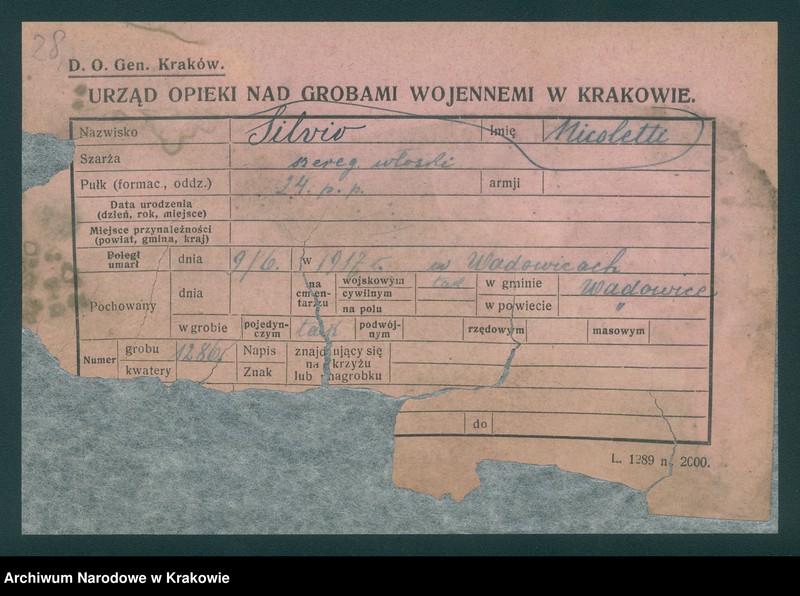 28
D. O. Gen. Kraków.
URZĄD OPIEKI NAD GROBAMI WOJENNEMI W KRAKOWIE.
Nazwisko Silvio Imię Nicoletti
Szarża szereg. włoski
Pułk (formac., oddz.) 24. p. p. armji
Data urodzenia
(dzień, rok, miejsce)
Miejsce przynależności
(powiat, gmina, kraj)
Poległ
umarł dnia 9/6. w 1917 r. w Wadowicach
Pochowany dnia na cmen-tarzu wojskowym tak w gminie Wadowice
cywilnym
na polu w powiecie "
w grobie pojedyn-czym tak podwój-nym rzędowym masowym
Numer grobu 1286 Napis znajdujący się
kwatery Znak na krzyżu
lub nagrobku
do
L. 1289 n. 2000.
Archiwum Narodowe w Krakowie